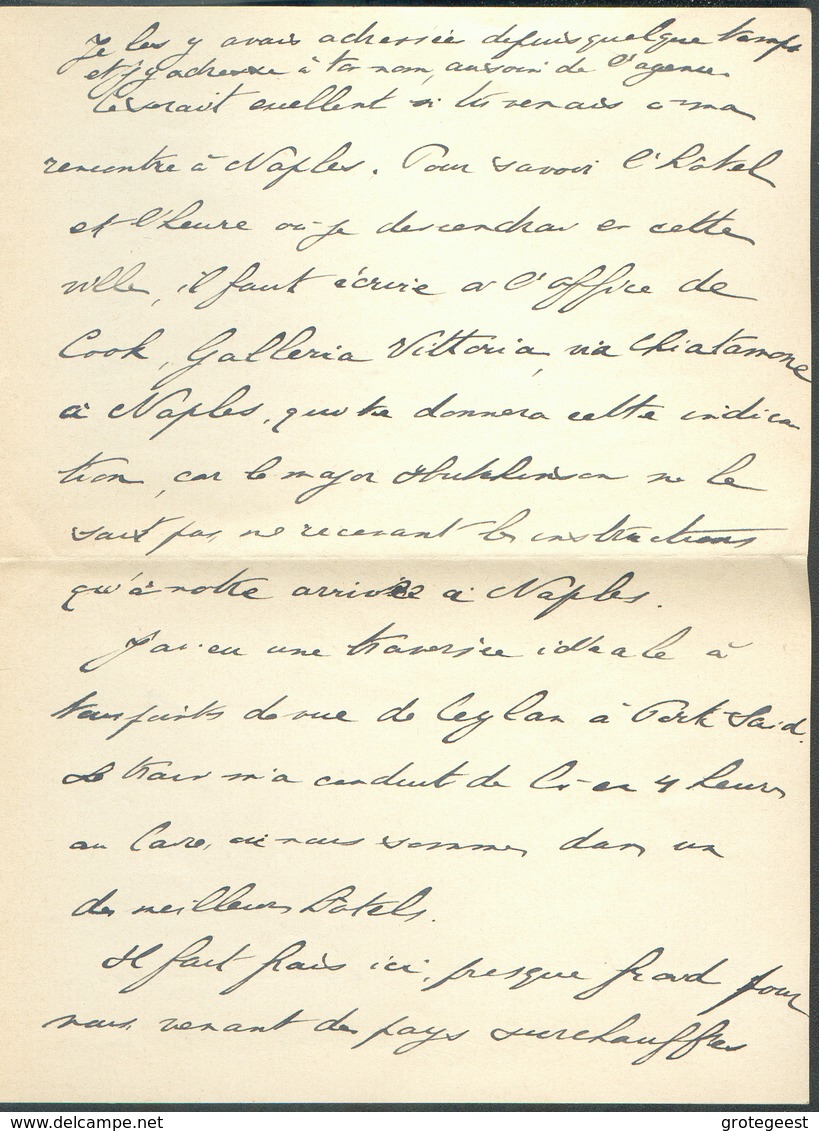 Je les y avais adressée depuis quelque temps
et j'y adresse à ton nom, au soin de l'agence
Ce serait excellent si tu venais à ma
rencontre à Naples. Pour savoir l'hôtel
et l'heure où je descendrai en cette
ville, il faut écrire à l'office de
Cook, Galleria Vittoria, via Chiatamone
à Naples, qui te donnera cette indica
tion, car le major Hutchinson ne le
sait pas, ne recevant les instructions
qu'à notre arrivée à Naples.
J'ai eu une traversée idéale à
tous points de vue de Ceylan à Port Said.
Le train m'a conduit de là en 4 heures
au Caire, où nous sommes dans un
des meilleurs hôtels.
Il fait frais ici, presque froid pour
nous venant des pays surchauffés
delcampe.net
grotegeest